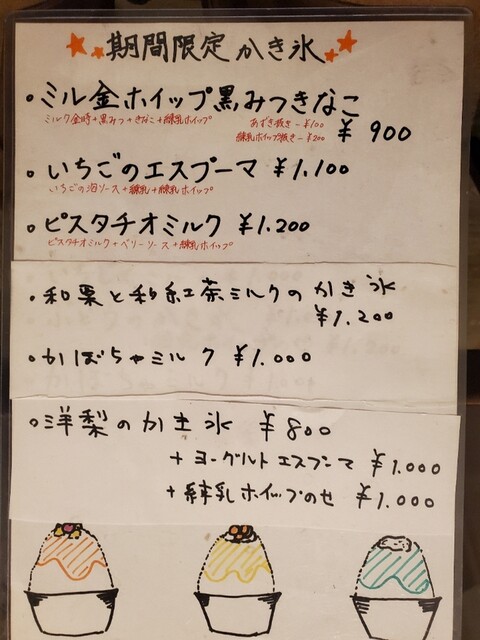 期間限定かき氷
・ミル金ホイップ黒みつきなこ
ミルク金時+黒みつ+きなこ+練乳ホイップ
あずき抜き-¥100
練乳ホイップ抜き-¥200
¥900
・いちごのエスプーマ ¥1.100
いちごの泡ソース+練乳+練乳ホイップ
・ピスタチオミルク ¥1.200
ピスタチオミルク+ベリーソース+練乳ホイップ
・和栗と和紅茶ミルクのかき氷
¥1.200
・かぼちゃミルク ¥1.000
・洋梨のかき氷 ¥800
+ヨーグルトエスプーマ ¥1.000
+練乳ホイップのせ ¥1.000